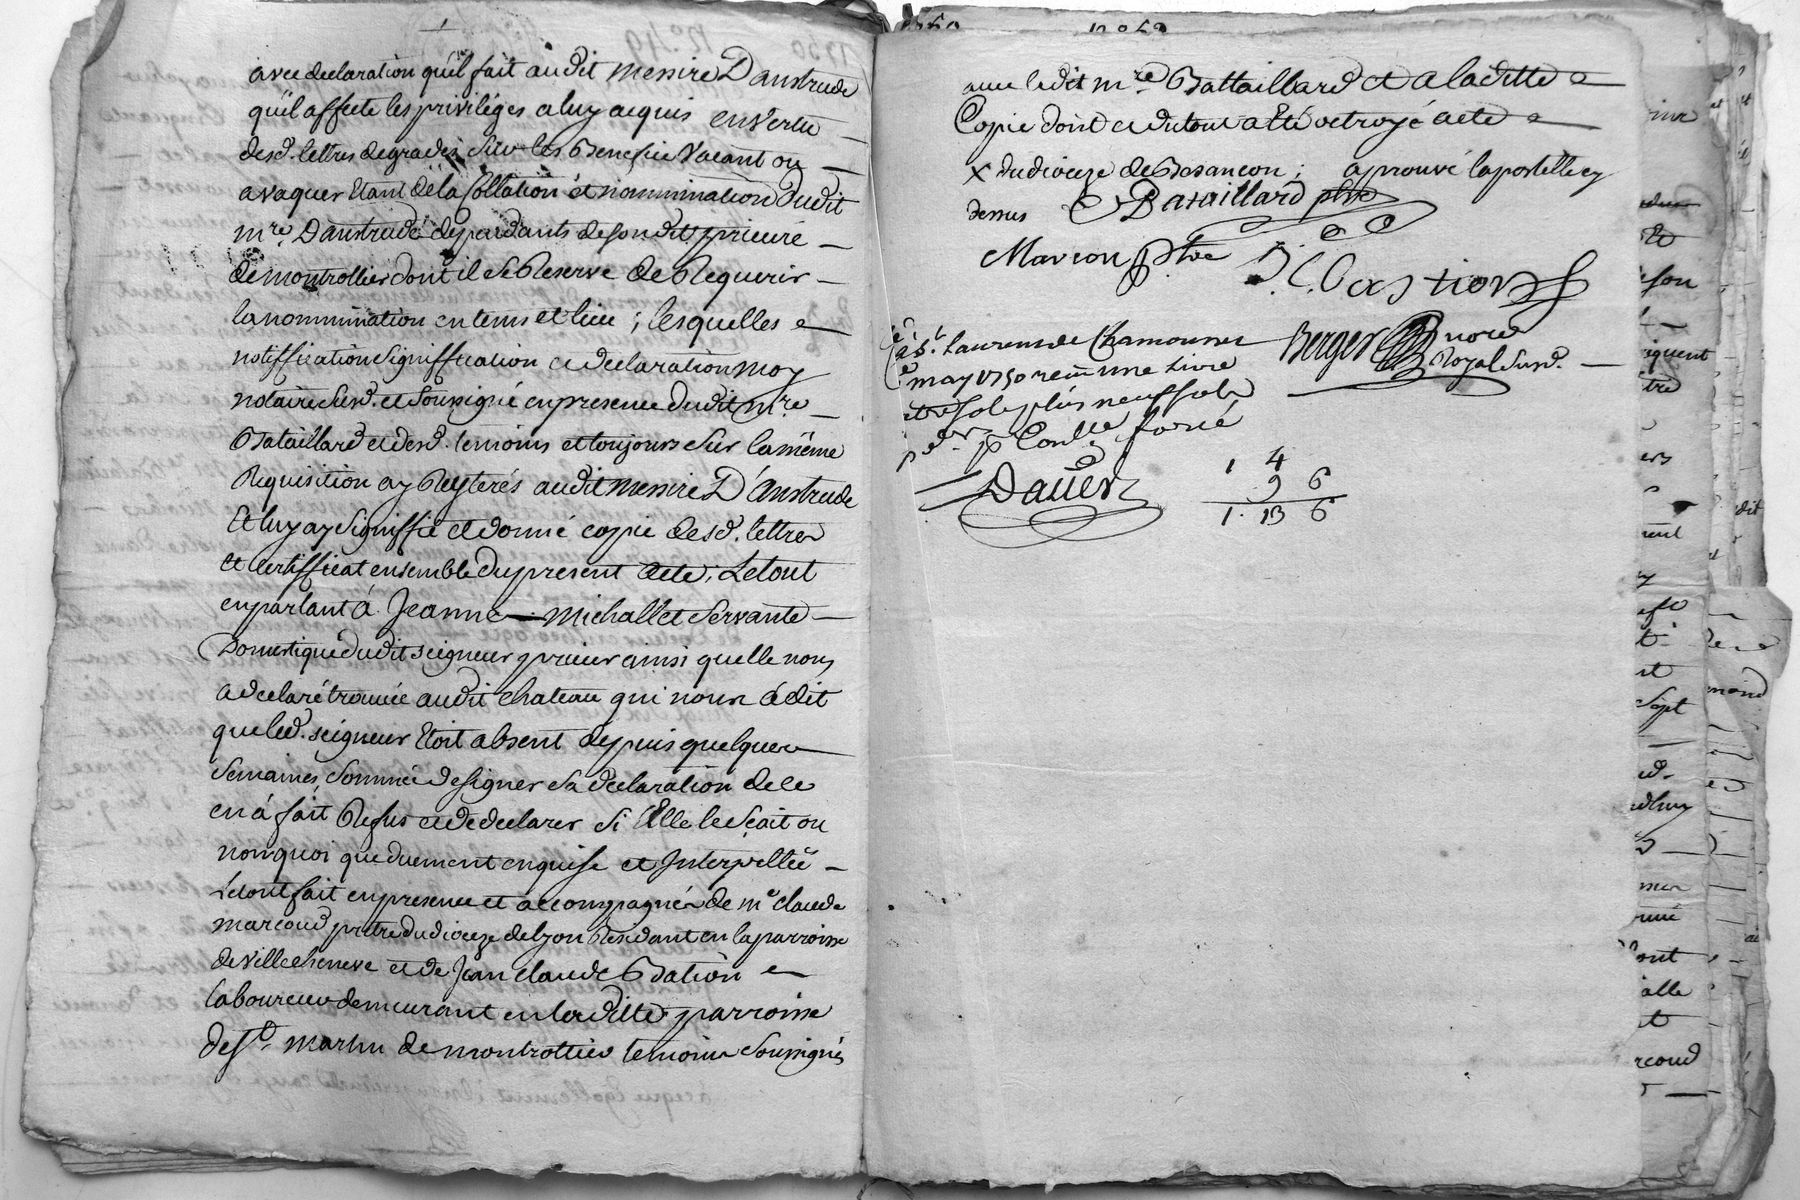 avec declaration qu'il fait audit messire D'anstrude
qu'il affecte les priviléges a luy acquis en vertu
desd. lettres de grades sur les Benefice Vacant ou
a vaquer Etant de la Collation et nommination Dudit
mre. D'anstrude dépendants de son dit prieuré
de montrottier dont il se Reserve de Requerir
la nommination en tems et lieu ; lesquelles
notiffication signiffication et declaration moy
notaire susd. et soussigné en presence dudit mre
Bataillard et desd. temoins et toujours sur la même
Requisition ay Reyterés audit messire D'anstrude
Et luy ay signiffié et donné copie desd. lettres
et certifficat ensemble du present acte ; Le tout
en parlant á Jeanne michallet servante
Domestique dudit seigneur prieur ainsi quelle nous
a declaré trouvée audit chateau qui nous á dit
que led. seigneur Etoit absent depuis quelques
semaines, sommée de signer sa declaration
en á fait Refus et de declarer si Elle le sçait ou
non quoi que duement enquise et Interpellée
Le tout fait en presence et accompagnés de me claude
marcoud pretre du dioceze de lyon Residant en la parroisse
de villecheneve et de Jean claude Bation
laboureur demeurant en laditte parroisse
de st. martin de montrottier temoins soussignés
avec ledit mre. Battaillard et a laditte
Copie dont et du tout a Eté octroyé acte
x du dioceze de Besancon ; aprouvé lapostelle cy
dessus Bataillard ptre
Marcon ptre J. C. Bastion
Berger nore
Royal susd.
a st. Laurens de Chamousset
may 1750 une livre
sols plus neuf sols
Dauer
1 4
9 6
1. 13 6